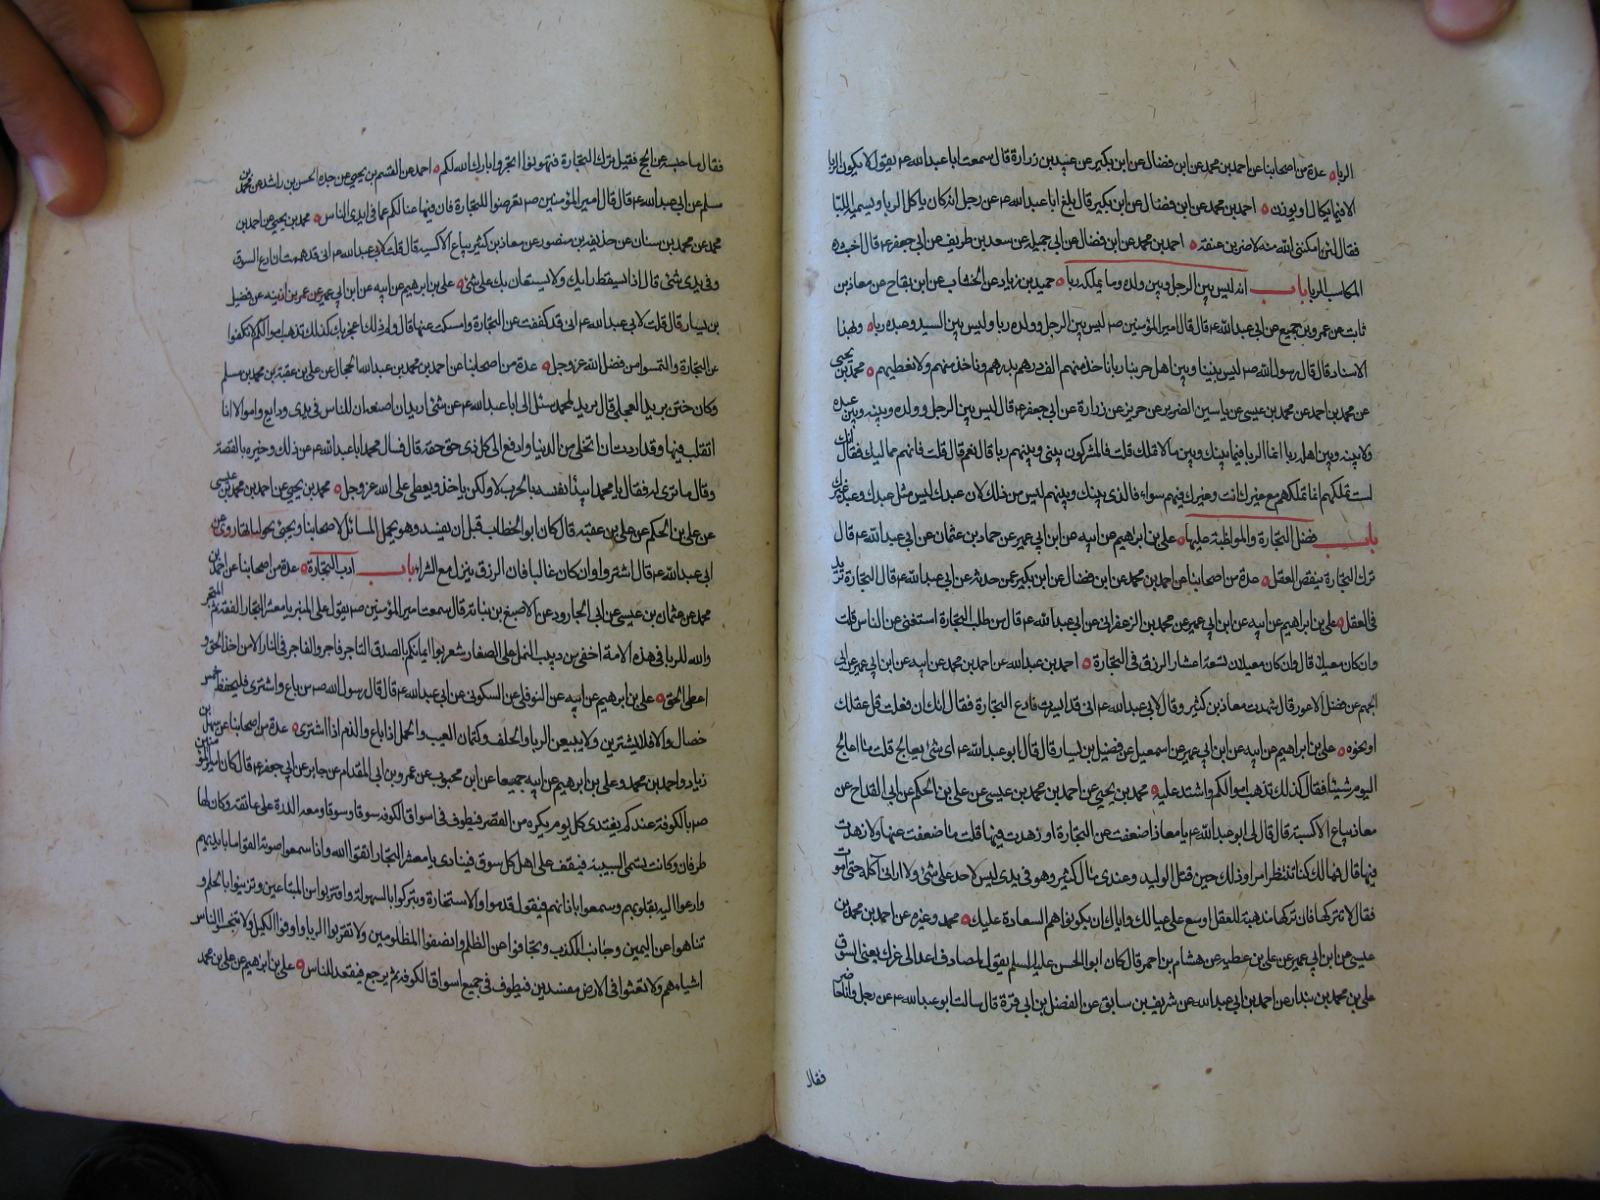 الربا عدة من اصحابنا عن احمد بن محمد عن ابن فضال عن ابن بكير عن عبيد بن زرارة قال سمعت ابا عبد الله ع يقول لا يكون الربا
الا فيما يكال او يوزن احمد بن محمد عن ابن فضال عن ابن بكير قال بلغ ابا عبد الله ع عن رجل انه كان ياكل الربا ويسميه اللبا
فقال لئن امكنني الله منه لاضربن عنقه احمد بن محمد عن ابن فضال عن ابي جميله عن سعد بن طريف عن ابي جعفر ع قال اخبث
المكاسب الربا باب انه ليس بين الرجل وبين ولده وما يملكه ربا حميد بن زياد عن الخشاب عن ابن بقاح عن معاذ بن
ثابت عن عمرو بن جميع عن ابي عبد الله ع قال قال امير المؤمنين ص ليس بين الرجل وولده ربا وليس بين السيد وعبده ربا وبهذا
الاسناد قال قال رسول الله ص ليس بيننا وبين اهل حربنا ربا ناخذ منهم الف درهم بدرهم وناخذ منهم ولا نعطيهم محمد بن يحيى
عن محمد بن احمد عن محمد بن عيسى عن ياسين الضرير عن حريز عن زرارة عن ابي جعفر ع قال ليس بين الرجل وولده وبينه وبين عبده
ولا بينه وبين اهله ربا انما الربا فيما بينك وبين ما لا تملك قلت فالمشركون بيني وبينهم ربا قال نعم قال قلت فانهم مماليك فقال انك
لست تملكهم انما تملكهم مع غيرك انت وغيرك فيهم سواء فالذي بينك وبينهم ليس من ذلك لان عبدك ليس مثل عبدك وعبد غيرك
باب فضل التجارة والمواظبة عليها علي بن ابراهيم عن ابيه عن ابن ابي عمير عن حماد بن عثمان عن ابي عبد الله ع قال
ترك التجارة ينقص العقل عدة من اصحابنا عن احمد بن محمد عن ابن فضال عن ابن بكير عن حدثه عن ابي عبد الله ع قال التجارة تزيد
في العقل علي بن ابراهيم عن ابيه عن ابن ابي عمير عن محمد بن الزعفراني عن ابي عبد الله ع قال من طلب التجارة استغنى عن الناس قلت
وان كان معيلا قال وان كان معيلا ان تسعة اعشار الرزق في التجارة احمد بن عبد الله عن احمد بن محمد عن ابيه عن ابن ابي عمير عن ابي
الجهم عن فضل الاعور قال شهدت معاذ بن كثير وقال لابي عبد الله ع اني قد ايسرت فادع التجارة فقال انك ان فعلت قل عقلك
او نحوه علي بن ابراهيم عن ابيه عن ابن ابي عمير عن اسمعيل عن فضيل بن يسار قال قال ابو عبد الله ع اي شئ يعالج قلت ما اعالج
اليوم شيئا فقال كذلك تذهب اموالكم واشتد عليه محمد بن يحيى عن احمد بن محمد بن عيسى عن علي بن الحكم عن ابي الفداح عن
معاذ بياع الاكسية قال قال لي ابو عبد الله ع يا معاذ اضعفت عن التجارة او زهدت فيها قلت ما ضعفت عنها ولا زهدت
فيها قال فما لك كنا ننتظر امرا وذلك حين قتل الوليد وعندي مال كثير وهو في يدي ليس لاحد علي شئ ولا اراني آكله حتى اموت
فقال لا تتركها فان تركها مذهبة للعقل اوسع على عيالك واياك ان يكونوا هم السعادة عليك محمد وغيره عن احمد بن محمد بن
عيسى عن ابن ابي عمير عن علي بن عطيه عن هشام بن احمر قال كان ابو الحسن عليه السلم يقول لمصادف اغد الى عزك يعني السوق
علي بن محمد بن بندار عن احمد بن ابي عبد الله عن شريف بن سابق عن الفضل بن ابي قرة قال سال ابو عبد الله ع عن رجل وانا حاضر
فقال
فقال ما حبسه عن الحج فقيل ترك التجارة اتجروا بارك الله لكم احمد عن القسم بن يحيى عن جده الحسن بن راشد عن محمد بن
مسلم عن ابي عبد الله ع قال قال امير المؤمنين ص تعرضوا للتجارة فان فيها غنا لكم عما في ايدي الناس محمد بن يحيى عن احمد بن
محمد عن محمد بن سنان عن حذيفه بن منصور عن معاذ بن كثير بياع الاكسيه قال قلت لابي عبد الله ع اني قد هممت ان ادع السوق
وفي يدي شئ قال اذا يسقط رايك ولا يستعان بك على شئ علي بن ابرهيم عن ابيه عن ابن ابي عمير عن عمر بن اذينه عن فضيل
بن يسار قال قلت لابي عبد الله ع اني قد كففت عن التجارة وامسكت عنها قال ولم ذلك اعجز بك كذلك تذهب اموالكم لا تكفوا
عن التجارة والتمسوا من فضل الله عز وجل عدة من اصحابنا عن احمد بن محمد بن عبد الله الحجال عن علي بن عقبة بن محمد بن مسلم
وكان ختن بريد العجلي قال بريد لمحمد سئل لي ابا عبد الله ع عن شئ اريد ان اصنعه ان للناس في يدي ودايع واموالا انا
اتقلب فيها وقد اردت ان اتخلى من الدنيا وادفع الى كل ذي حق حقه قال فسال محمد ابا عبد الله ع عن ذلك وخبره بالقصة
وقال ما ترى له فقال يا محمد ايبدا نفسه بالحرب لا ولكن ياخذ ويعطي على الله عز وجل محمد بن يحيى عن احمد بن محمد بن عيسى
عن علي بن الحكم عن علي بن عقبه قال كان ابو الخطاب قبل ان يفسد وهو يحمل المسائل لاصحابنا ويجئ بجواباتها روى عن
ابي عبد الله ع قال اشتروا وان كان غاليا فان الرزق ينزل مع الشراء باب ادب التجارة عدة من اصحابنا عن احمد بن
محمد عن عثمان بن عيسى عن ابي الجارود عن الاصبغ بن نباته قال سمعت امير المؤمنين ص يقول على المنبر يا معشر التجار الفقه ثم المتجر
والله للربا في هذه الامة اخفى من دبيب النمل على الصفا شوبوا ايمانكم بالصدق التاجر فاجر والفاجر في النار الا من اخذ الحق و
اعطى الحق علي بن ابرهيم عن ابيه عن النوفلي عن السكوني عن ابي عبد الله ع قال قال رسول الله ص من باع واشترى فليحفظ خمس
خصال والا فلا يشترين ولا يبيعن الربا والحلف وكتمان العيب والحمل اذا باع والذم اذا اشترى عدة من اصحابنا عن سهل بن
زياد واحمد بن محمد وعلي بن ابرهيم عن ابيه جميعا عن ابن محبوب عن عمرو بن ابي المقدام عن جابر عن ابي جعفر ع قال كان امير المؤمنين
ص بالكوفه عندكم يغتدي كل يوم بكره من القصر فيطوف في اسواق الكوفه سوقا سوقا ومعه الدرة على عاتقه وكان لها
طرفان وكانت تسمى السبيبة فيقف على اهل كل سوق فينادي يا معشر التجار اتقوا الله واذا سمعوا صوته القوا ما بايديهم
وارعوا اليه بقلوبهم وسمعوا باذانهم فيقول قدموا الاستخارة وتبركوا بالسهولة واقتربوا من المبتاعين وتزينوا بالحلم و
تناهوا عن اليمين وجانبوا الكذب وتجافوا عن الظلم وانصفوا المظلومين ولا تقربوا الربا واوفوا الكيل ولا تبخسوا الناس
اشياءهم ولا تعثوا في الارض مفسدين فيطوف في جميع اسواق الكوفه ثم يرجع فيقعد للناس علي بن ابرهيم عن علي بن محمد